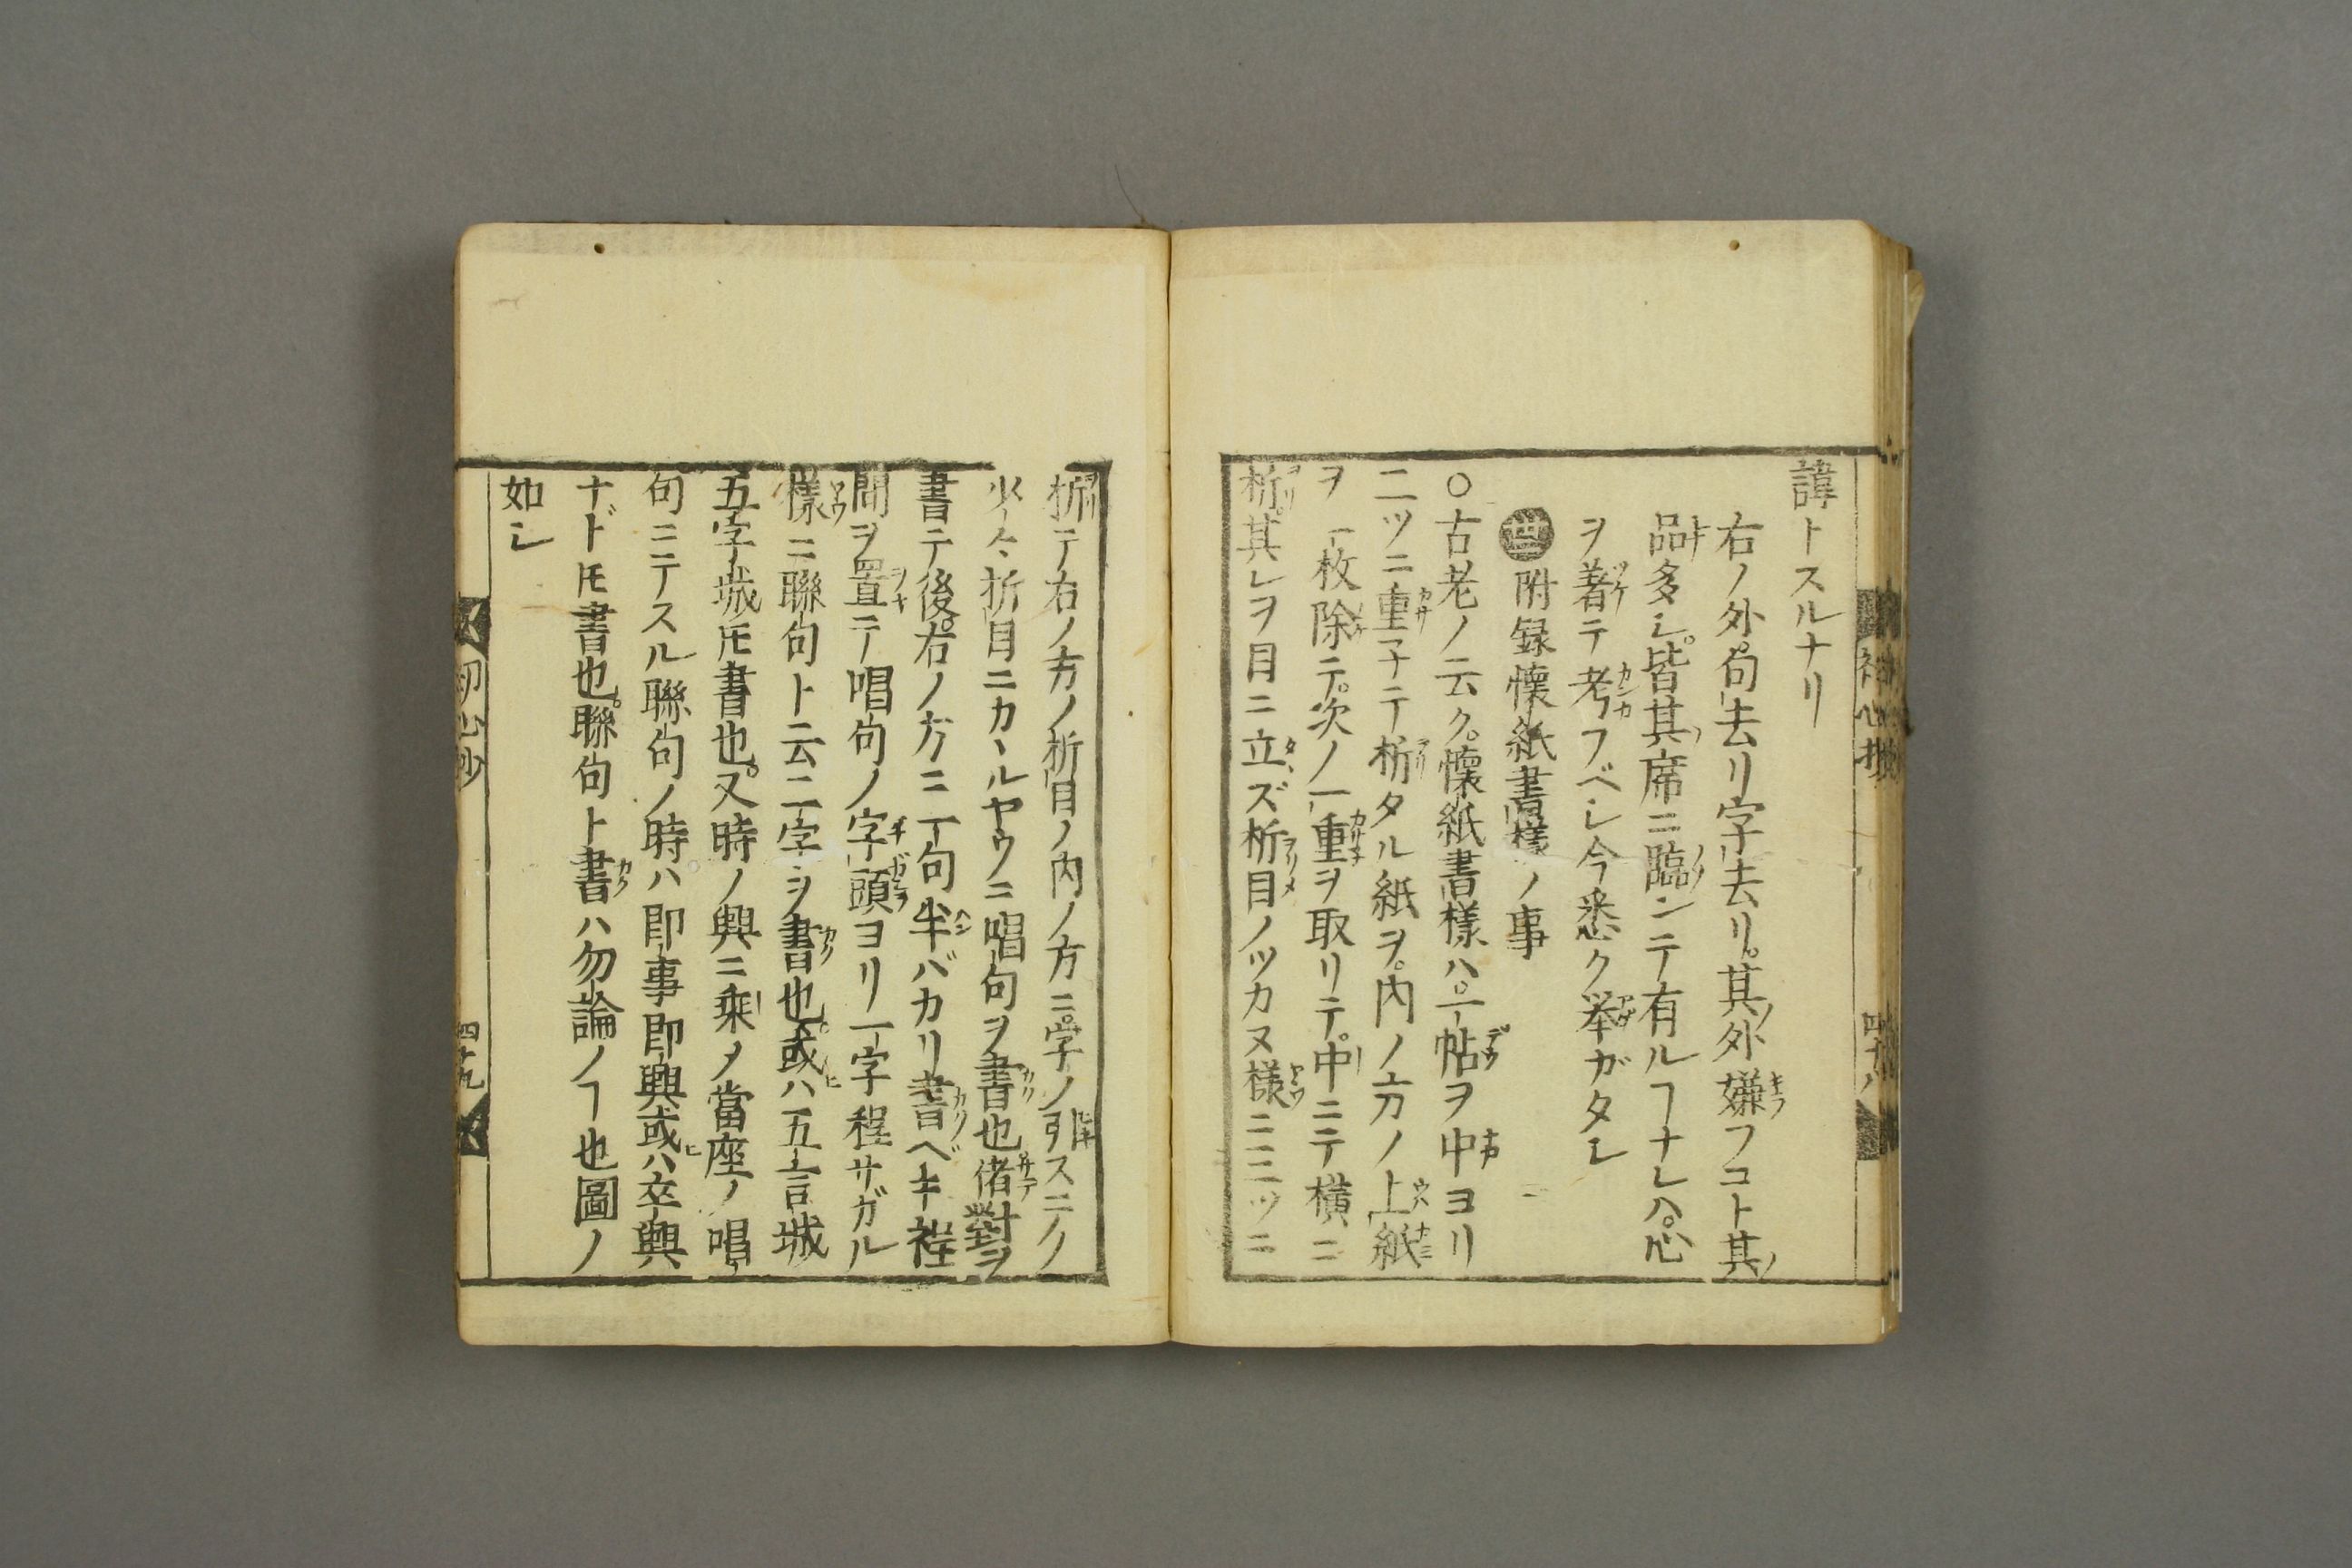 諱トスルナリ
右ノ外。句去リ字去リ。其ノ外嫌フコト其ノ
品多シ。皆其ノ席ニ臨ンテ有ルヿナレハ。心
ヲ著テ考フベシ今悉ク举ガタシ
附録懐紙書様ノ事
○古老ノ云ク。懐紙書様ハ。一帖ヲ中ヨリ
二ツニ重子テ析タル紙ヲ。内ノ方ノ上紙
ヲ一枚除テ。次ノ一重ヲ取リテ。中ニテ横ニ
析其レヲ目ニ立ズ析目ノツカヌ様ニ三ツニ
析テ右ノ方ノ析目ノ内ノ方ニ。字ノ引スミノ
少〻析目ニカヽルヤウニ唱句ヲ書也偖對ヲ
書テ後。右ノ方ニ一句半バカリ書ベキ程
間ヲ置テ唱句ノ字頭ヨリ一字程サガル
樣ニ聯句ト云二字ヲ書也。或ハ五言城
五字城𪜈書也。又時ノ興ニ乘メ當座ノ唱
句ニテスル聯句ノ時ハ即事即興或ハ卒興
ナド𪜈書也。聯句ト書ハ勿論ノヿ也圖ノ
如シ
初心抄
四十九
四十八